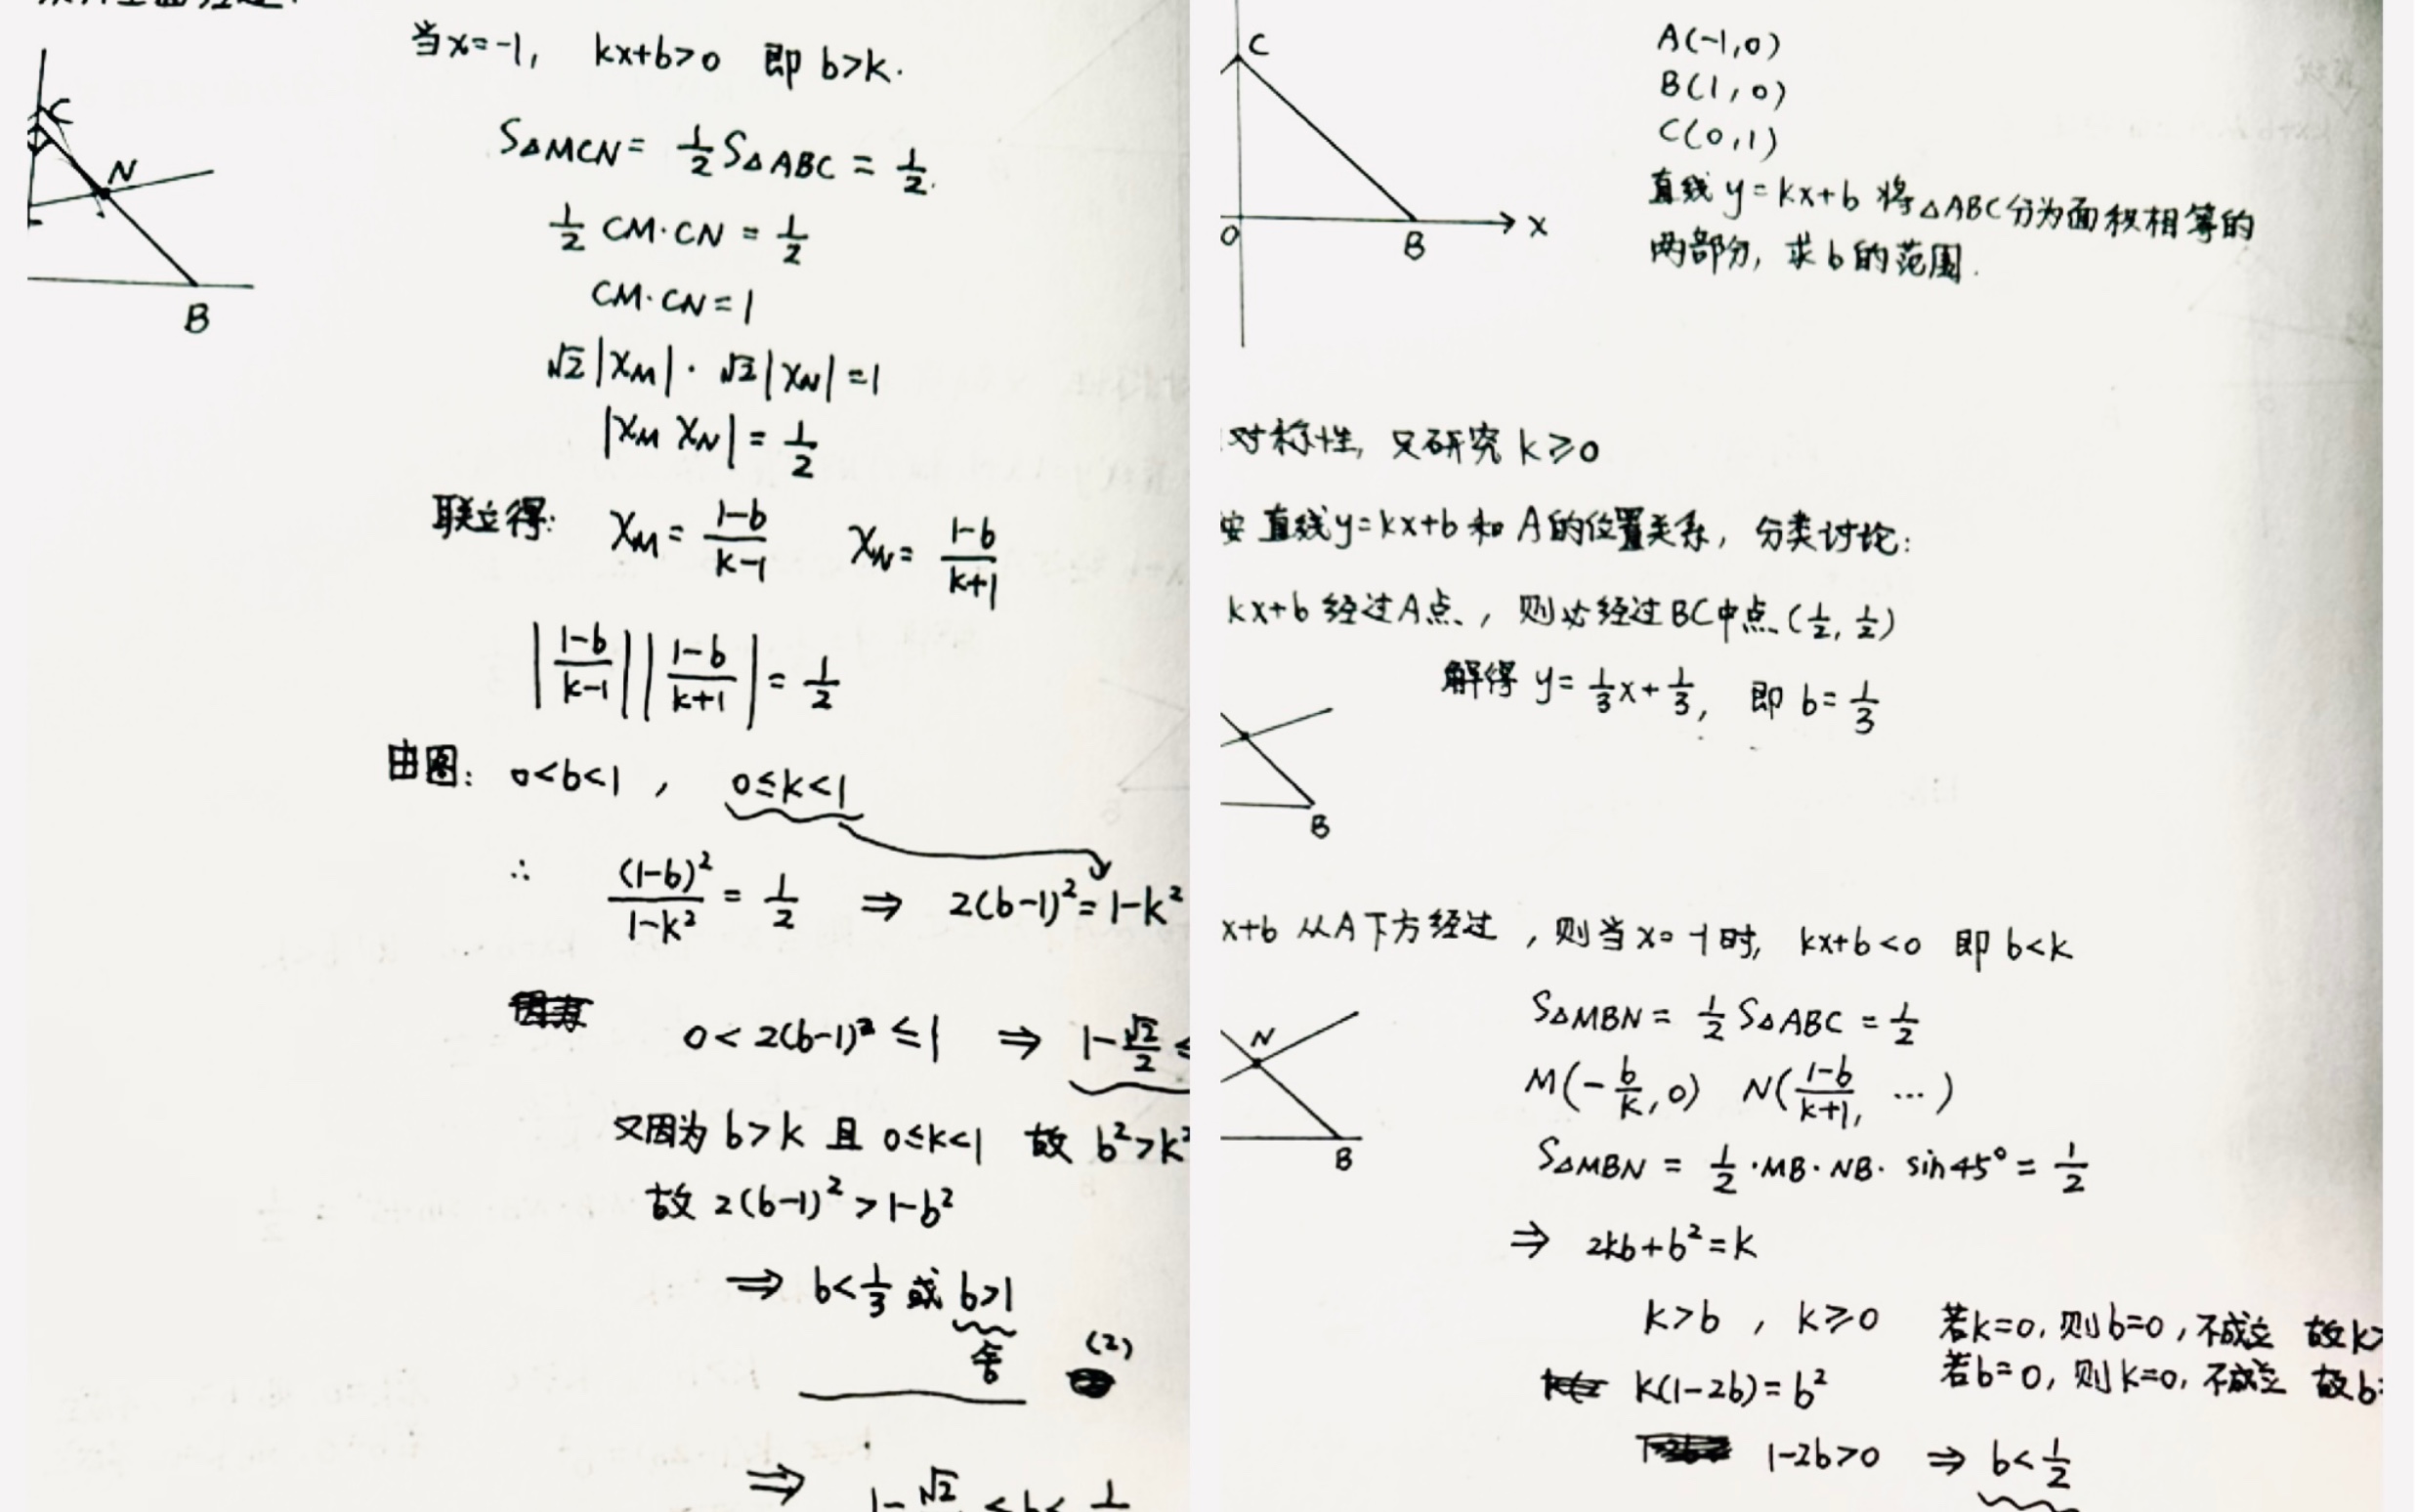 当x=-1, kx+b>0 即 b>k.
C
N
B
S△MCN = 1/2 S△ABC = 1/2.
1/2 CM·CN = 1/2
CM·CN=1
√2|xM|·√2|xN|=1
|xM xN| = 1/2
联立得: xM = (1-b)/(k-1) xN = (1-b)/(k+1)
|(1-b)/(k-1)||(1-b)/(k+1)| = 1/2
由图: 0<b<1, 0≤k<1
∴ (1-b)²/(1-k²) = 1/2 ⇒ 2(b-1)²=1-k²
0<2(b-1)²≤1 ⇒ 1-√2/2 ≤
又因为 b>k 且 0≤k<1 故 b²>k²
故 2(b-1)²>1-b²
⇒ b<1/3 或 b>1
舍
(2)
⇒ 1-√2 ≤b< 1
C
O
B
x
A(-1,0)
B(1,0)
C(0,1)
直线 y=kx+b 将△ABC分为面积相等的
两部分, 求b的范围.
对称性, 只研究 k≥0
按 直线y=kx+b 和 A的位置关系, 分类讨论:
kx+b 经过A点, 则必经过BC中点(1/2, 1/2)
解得 y=1/3x+1/3, 即 b=1/3
B
x+b 从A下方经过, 则当x=-1时, kx+b<0 即 b<k
N
B
S△MBN = 1/2 S△ABC = 1/2
M(-b/k,0) N((1-b)/(k+1), …)
S△MBN = 1/2·MB·NB·sin45°=1/2
⇒ 2kb+b²=k
k>b, k≥0
若k=0, 则b=0, 不成立 故k>
若b=0, 则k=0, 不成立 故b
k(1-2b)=b²
1-2b>0 ⇒ b<1/2